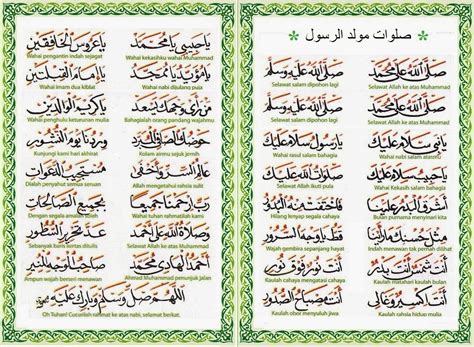 صلوات مولد الرسول
صَلَّى اللهُ عَلَى مُحَمَّدْ
صَلَّى اللهُ عَلَيْهِ وَسَلَّمْ
Selawat Allah ke atas Muhammad
Selawat salam dipohon lagi
صَلَّى اللهُ عَلَى مُحَمَّدْ
صَلَّى اللهُ عَلَيْهِ وَسَلَّمْ
Selawat Allah ke atas Muhammad
Selawat salam dipohon lagi
يَا نَبِي سَلَامْ عَلَيْكَ
يَارَسُولْ سَلَامْ عَلَيْكَ
Wahai nabi salam atasmu
Wahai rasul salam bahagia
يَا حَبِيبْ سَلَامْ عَلَيْكَ
صَلَوَاتُ اللهْ عَلَيْكَ
Wahai Kekasih salam bahagia
Selawat Allah ikuti pula
أَشْرَقَ الْبَدْرُ عَلَيْنَا
فَاخْتَفَتْ مِنْهُ الْبُدُورُ
Bulan purnama menyinari kita
Hilang lenyap segala cahaya
مِثْلَ حُسْنِكْ مَا رَأَيْنَا
قَطُّ يَا وَجْهَ السُّرُورِ
Indah menawan tak pernah dilihat
Wajah gembira sepanjang hayat
أَنْتَ شَمْسٌ أَنْتَ بَدْرٌ
أَنْتَ نُورٌ فَوْقَ نُورِ
Kaulah matahari kaulah bulan
Kaulah cahaya mengatasi cahaya
أَنْتَ إِكْسِيرٌ وَغَالِي
أَنْتَ مِصْبَاحُ الصُّدُورِ
Kaulah rahsia hidup mulia
Kaulah obor menyuluh jiwa
يَاحَبِيبِي يَامُحَمَّدْ
يَاعَرُوسَ الْخَافِقَيْنِ
Wahai kekasihku wahai Muhammad
Wahai pengantin indah sejagat
يَامُؤَيَّدْ يَامُمَجَّدْ
يَا إِمَامَ الْقِبْلَتَيْنِ
Wahai nabi dijulang puja
Wahai imam dua kiblat
مَنْ رَأَى وَجْهَكَ يَسْعَدْ
يَا كَرِيمَ الْوَالِدَيْنِ
Bahagialah orang pandang wajahmu
Wahai penghulu keturunan mulia
حَوْضُكَ الصَّافِي الْمُبَرَّدْ
وِرْدُنَا يَوْمَ النُّشُورِ
Kolam airmu sejuk jernih
Kunjungi kami hari akhirat
عَالِمُ السِّرِّ وَأَخْفَى
مُسْتَجِيبُ الدَّعَوَاتِ
Allah mengetahui rahsia sulit
Dialah penyahut semua seruan
رَبِّ ارْحَمْنَا جَمِيعًا
بِجَمِيعِ الصَّالِحَاتِ
Wahai tuhan rahmatilah kami
Dengan segala amalan salih
وَصَلَاةُ اللهِ عَلَى أَحْمَدْ
عَدَّ تَحْرِيرِ السُّطُورِ
Selawat Allah ke atas Muhammad
Sebanyak baris kertas ditulis
أَحْمَدُ الْهَادِي مُحَمَّدْ
صَاحِبُ الْوَجْهِ الْمُنِيرِ
Ahmad Muhammad penunjuk jalan
Ampun wajah berseri menawan
اللَّهُمَّ صَلِّ وَسَلِّمْ وَبَارِكْ عَلَيْهِ
Oh Tuhan! Cucurilah rahmat ke atas nabi, selamat berkat.